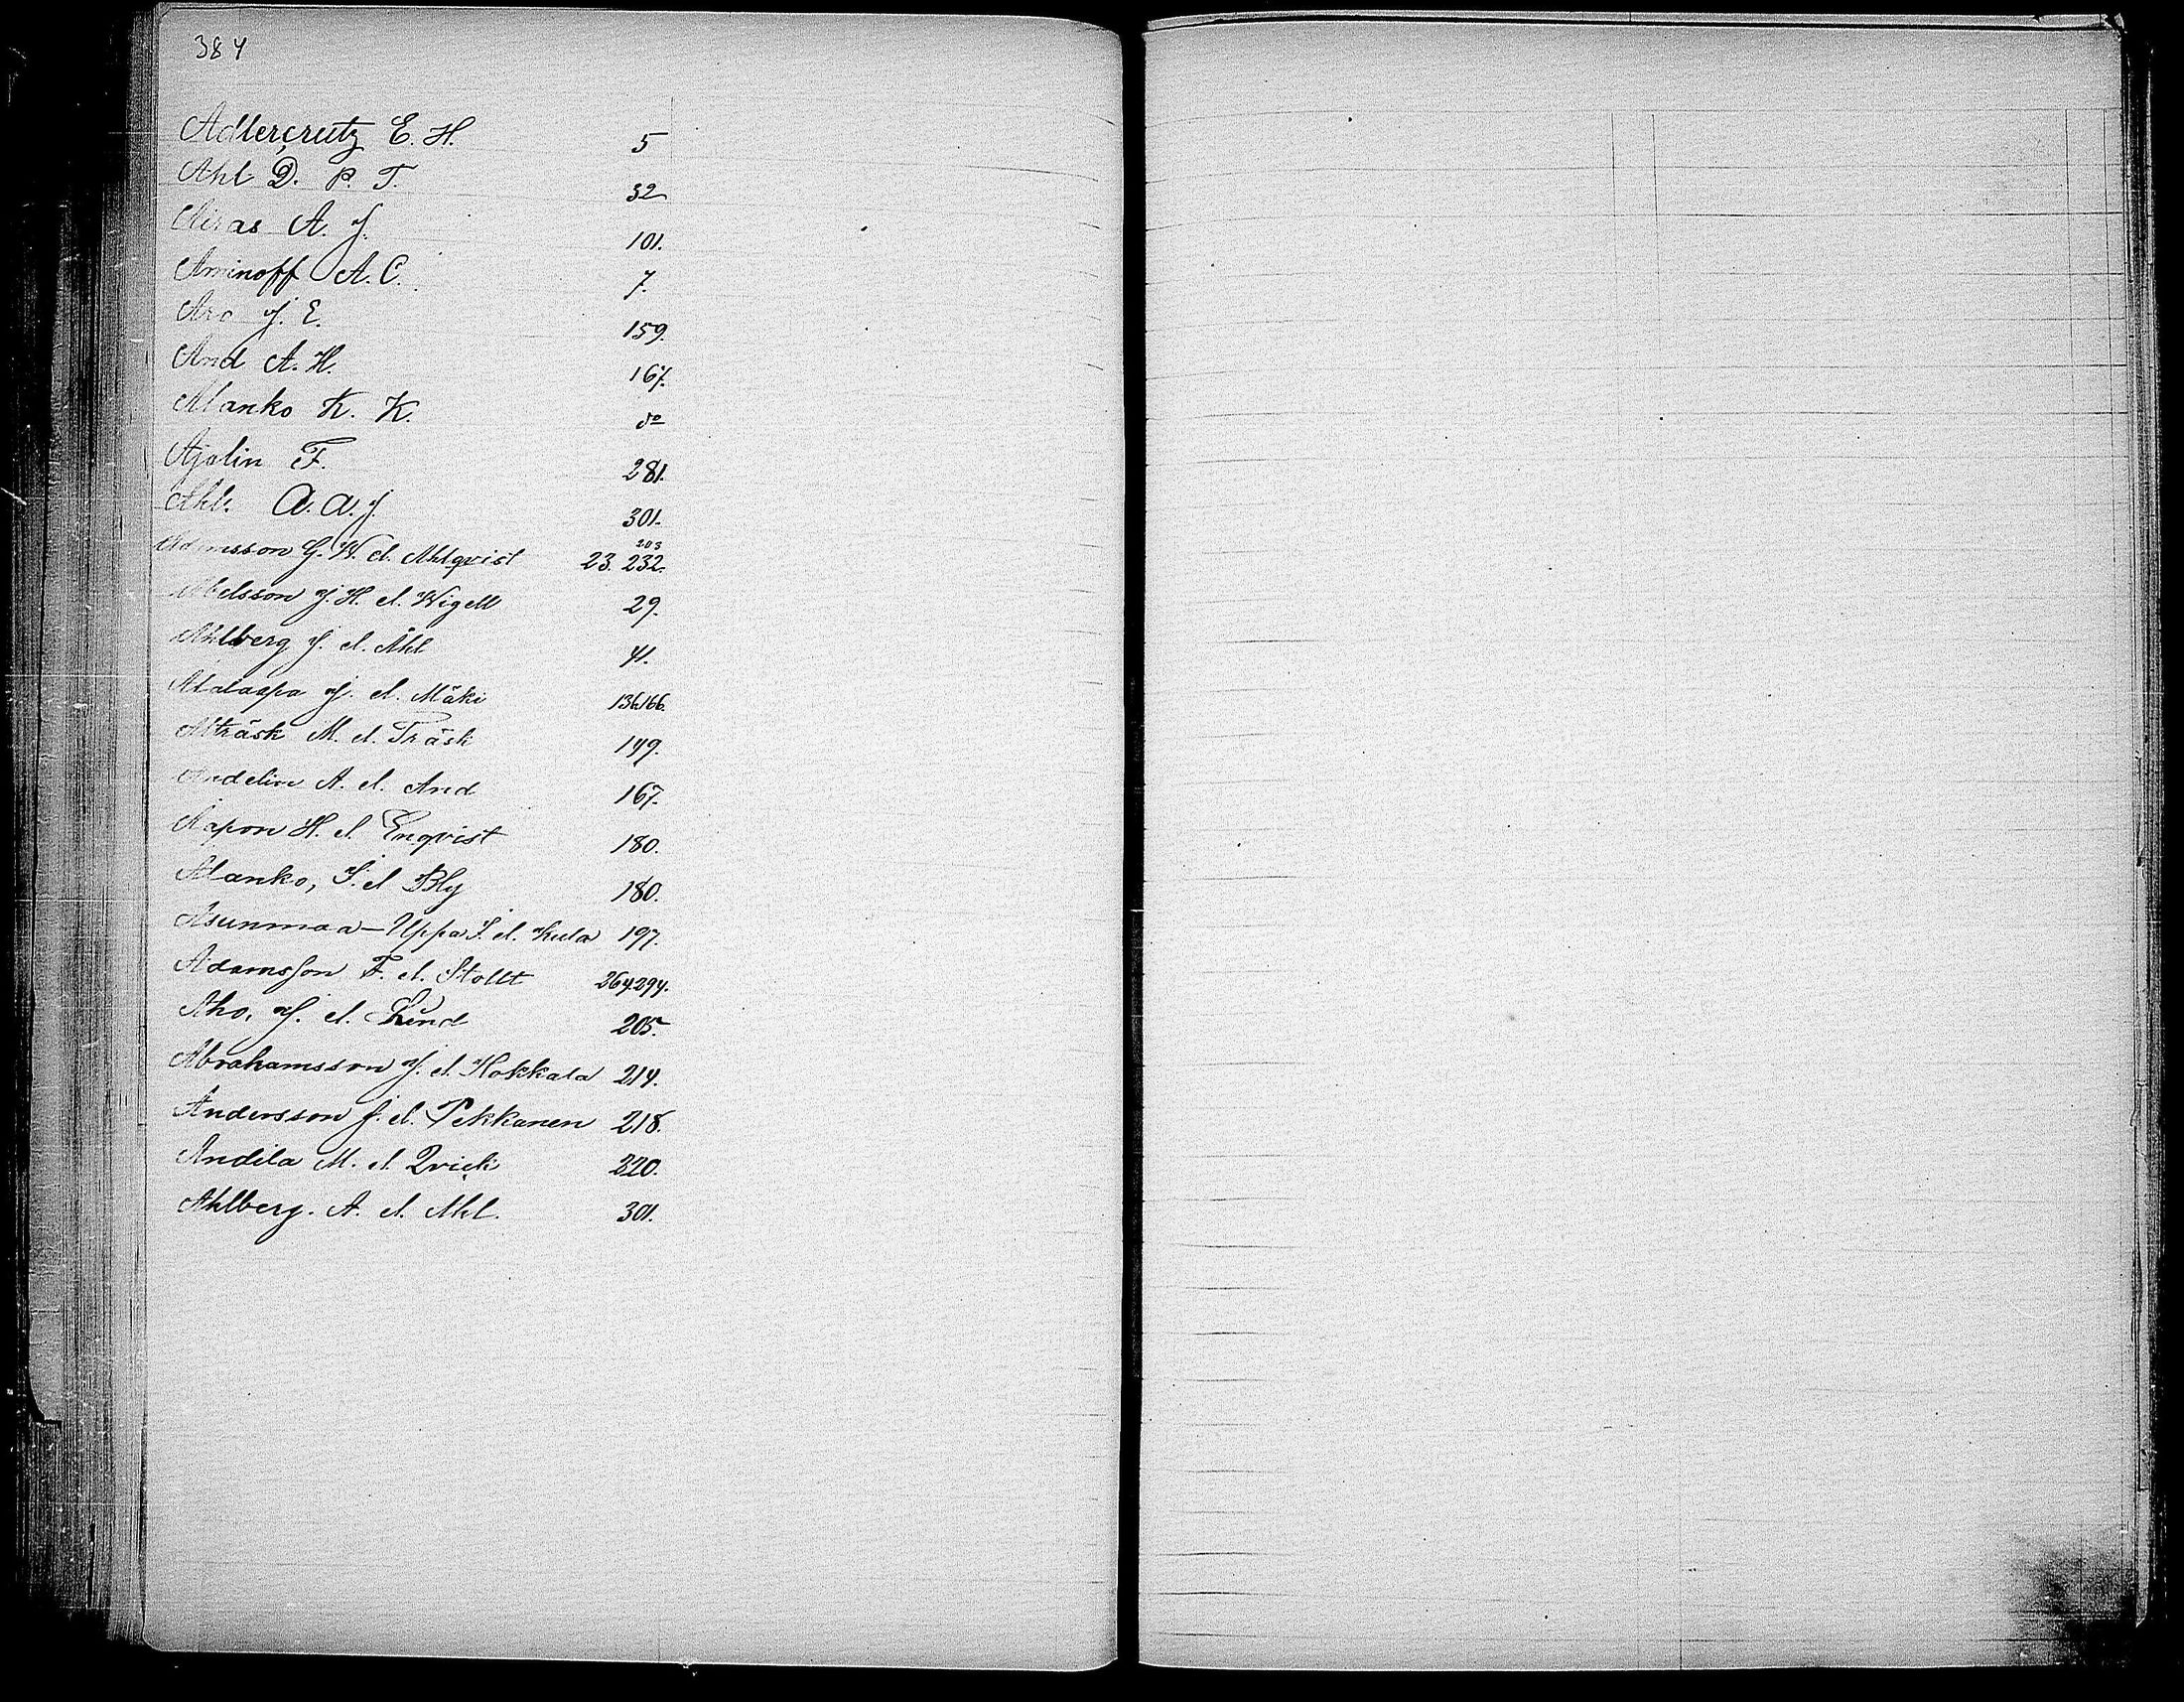 384
Adlercreutz E. H. 5
Ahl D. P. T. 32
Airas A. J. 101.
Aminoff A. C. 7.
Aro J. E. 159.
And A. H. 167.
Alanko K. K. do
Ajalin F. 281.
Ahl. A. A. J. 301.
203
Adamsson G. W. el. Ahlqvist 23. 232.
Abelsson J. H. el. Wigell 29.
Ahlberg J. el. Ahl 41.
Alalaspa J. el. Mäki 136.166.
Alträsk M. el. Träsk 149.
Andelin A. el. And 167.
Aapon H. el. Enqvist 180.
Alanko, I. el Bly 180.
Asunmaa-Uppa I. el. Kula 197.
Adamsson F. el. Stollt 264.294.
Aho, J. el. Lind 205.
Abrahamsson J. el. Hokkala 214.
Andersson J. el. Pekkanen 218.
Andila M. el. Qvick 220.
Ahlberg. A. el. Ahl. 301.